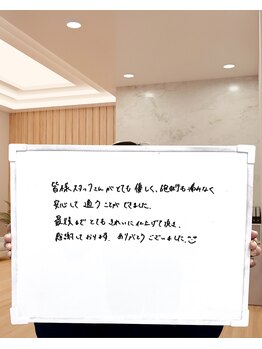 皆様スタッフさんがとても優しく、施術も痛みなく
安心して通うことができました。
最後までとてもきれいに仕上げて頂き、
感謝しております。ありがとうございました。